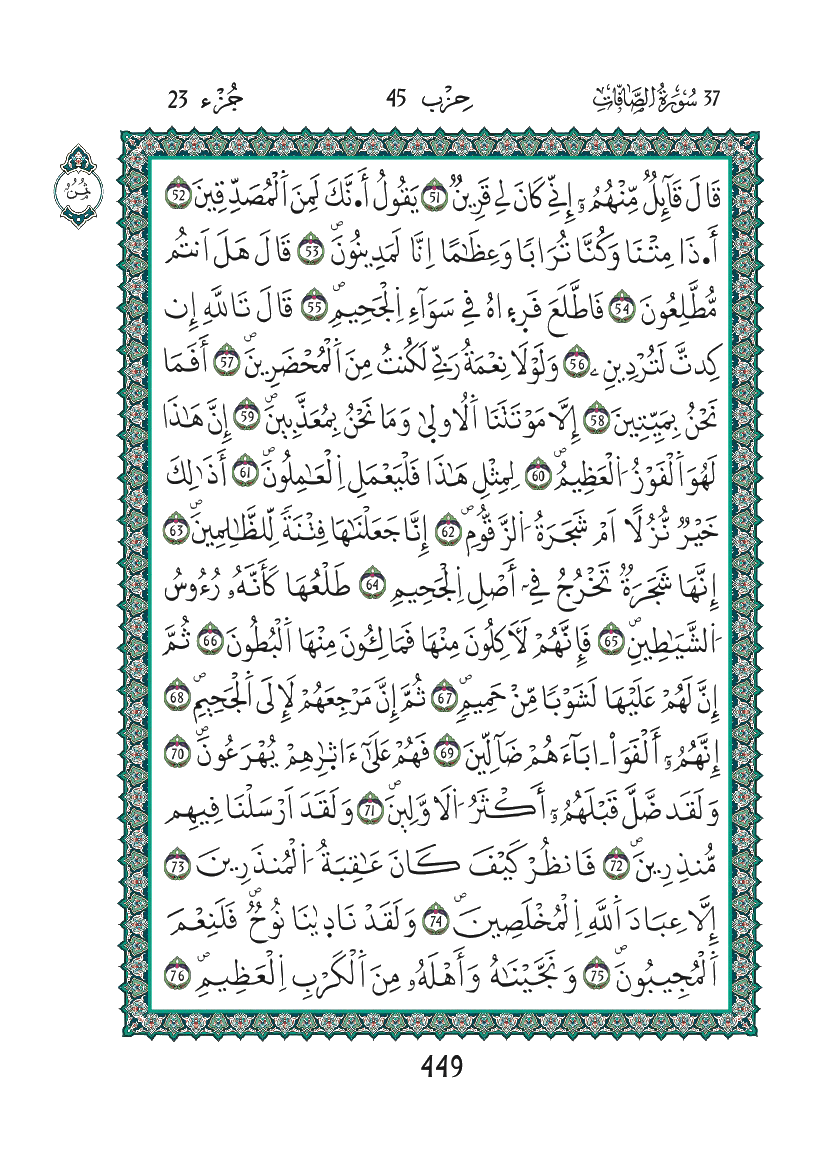 37 سُورَةُ الصَّافَّاتِ حِزْب 45 جُزْء 23
ثُمُنُ
قَالَ قَآئِلٌ مِّنْهُمُۥٓ إِنِّے كَانَ لِے قَرِينٌ 51 يَقُولُ أَ.نَّكَ لَمِنَ اَ۬لْمُصَدِّقِينَ 52
أَ.ذَا مِتْنَا وَكُنَّا تُرَابًا وَعِظَٰمًا اِنَّا لَمَدِينُونَۖ 53 قَالَ هَلَ اَنتُم
مُّطَّلِعُونَ 54 فَاطَّلَعَ فَر۪ء۪اهُ فِے سَوَآءِ اِ۬لْجَحِيمِۖ 55 قَالَ تَاللَّهِ إِن
كِدتَّ لَتُرْدِينِۦ 56 وَلَوْلَا نِعْمَةُ رَبِّے لَكُنتُ مِنَ اَ۬لْمُحْضَرِينَۖ 57 أَفَمَا
نَحْنُ بِمَيِّتِينَ 58 إِلَّا مَوْتَتَنَا اَ۬لُاول۪يٰ وَمَا نَحْنُ بِمُعَذَّبِينَۖ 59 إِنَّ هَٰذَا
لَهُوَ اَ۬لْفَوْزُ اُ۬لْعَظِيمُۖ 60 لِمِثْلِ هَٰذَا فَلْيَعْمَلِ اِ۬لْعَٰمِلُونَۖ 61 أَذَٰلِكَ
خَيْرٌ نُّزُلًا اَمْ شَجَرَةُ اُ۬لزَّقُّومِۖ 62 إِنَّا جَعَلْنَٰهَا فِتْنَةً لِّلظَّٰلِمِينَۖ 63
إِنَّهَا شَجَرَةٌ تَخْرُجُ فِےٓ أَصْلِ اِ۬لْجَحِيمِ 64 طَلْعُهَا كَأَنَّهُۥ رُءُوسُ
اُ۬لشَّيَٰطِينِۖ 65 فَإِنَّهُمْ لَأَكِلُونَ مِنْهَا فَمَالِـُٔونَ مِنْهَا اَ۬لْبُطُونَ 66 ثُمَّ
إِنَّ لَهُمْ عَلَيْهَا لَشَوْبًا مِّنْ حَمِيمٍۖ 67 ثُمَّ إِنَّ مَرْجِعَهُمْ لَإِلَى اَ۬لْجَحِيمِۖ 68
إِنَّهُمُۥٓ أَلْفَوَاْ ـ۬ابَآءَهُمْ ضَآلِّينَ 69 فَهُمْ عَلَىٰٓ ءَاثٰ۪رِهِمْ يُهْرَعُونَۖ 70
وَلَقَد ضَّلَّ قَبْلَهُمُۥٓ أَكْثَرُ اُ۬لَاوَّلِينَۖ 71 وَلَقَدَ اَرْسَلْنَا فِيهِم
مُّنذِرِينَۖ 72 فَانظُرْ كَيْفَ كَانَ عَٰقِبَةُ اُ۬لْمُنذَرِينَ 73
إِلَّا عِبَادَ اَ۬للَّهِ اِ۬لْمُخْلَصِينَۖ 74 وَلَقَدْ نَاد۪يٰنَا نُوحٌۖ فَلَنِعْمَ
اَ۬لْمُجِيبُونَۖ 75 وَنَجَّيْنَٰهُ وَأَهْلَهُۥ مِنَ اَ۬لْكَرْبِ اِ۬لْعَظِيمِۖ 76
449